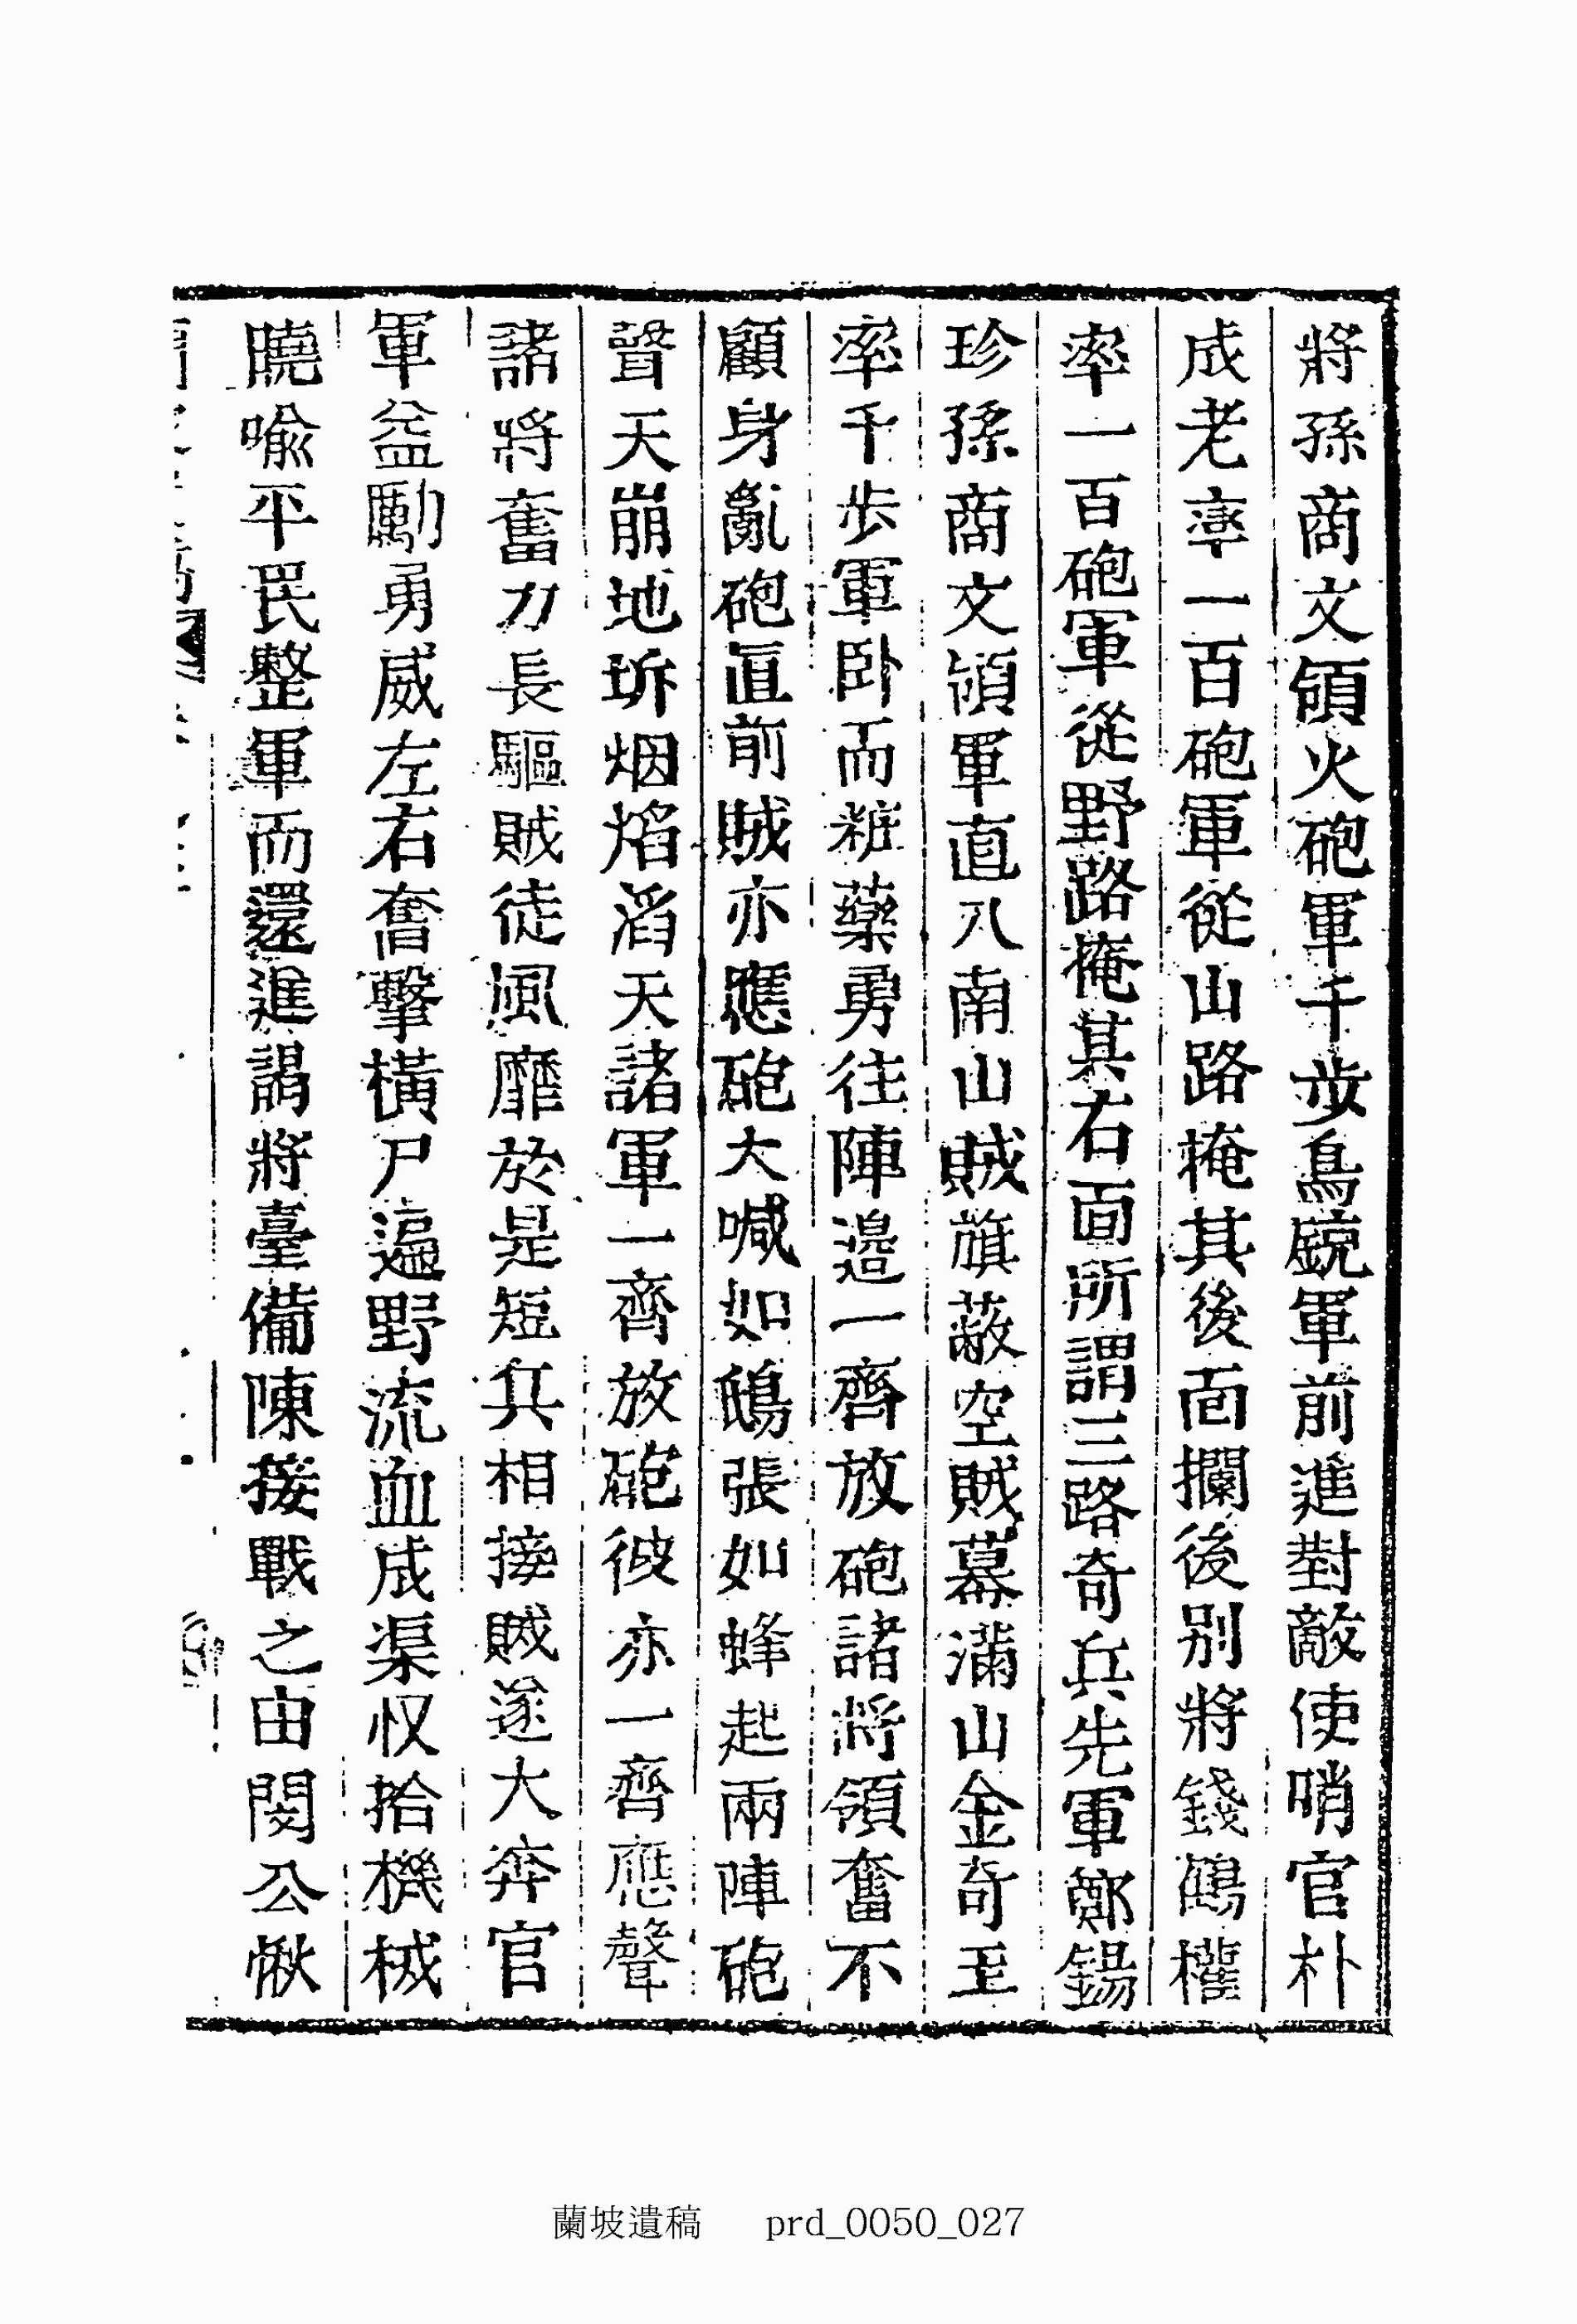 將孫商文領火砲軍千步鳥銃軍前進對敵使哨官朴
成老率一百砲軍從山路掩其後面攔後別將錢鶴權
率一百砲軍從野路掩其右面所謂三路奇兵先軍鄭錫
珍孫商文領軍直入南山賊旗蔽空賊幕滿山金奇玉
率千步軍卧而粧藥勇往陣邊一齊放砲諸將領奮不
顧身亂砲直前賊亦應砲大喊如鴟張如蜂起兩陣砲
聲天崩地坼烟焰滔天諸軍一齊放砲彼亦一齊應聲
諸將奮力長驅賊徒風靡於是短兵相接賊遂大奔官
軍益勵勇威左右奮擊橫尸遍野流血成渠収拾機械
曉喩平民整軍而還進謁將臺備陳接戰之由閔公愀
蘭坡遺稿 prd_0050_027